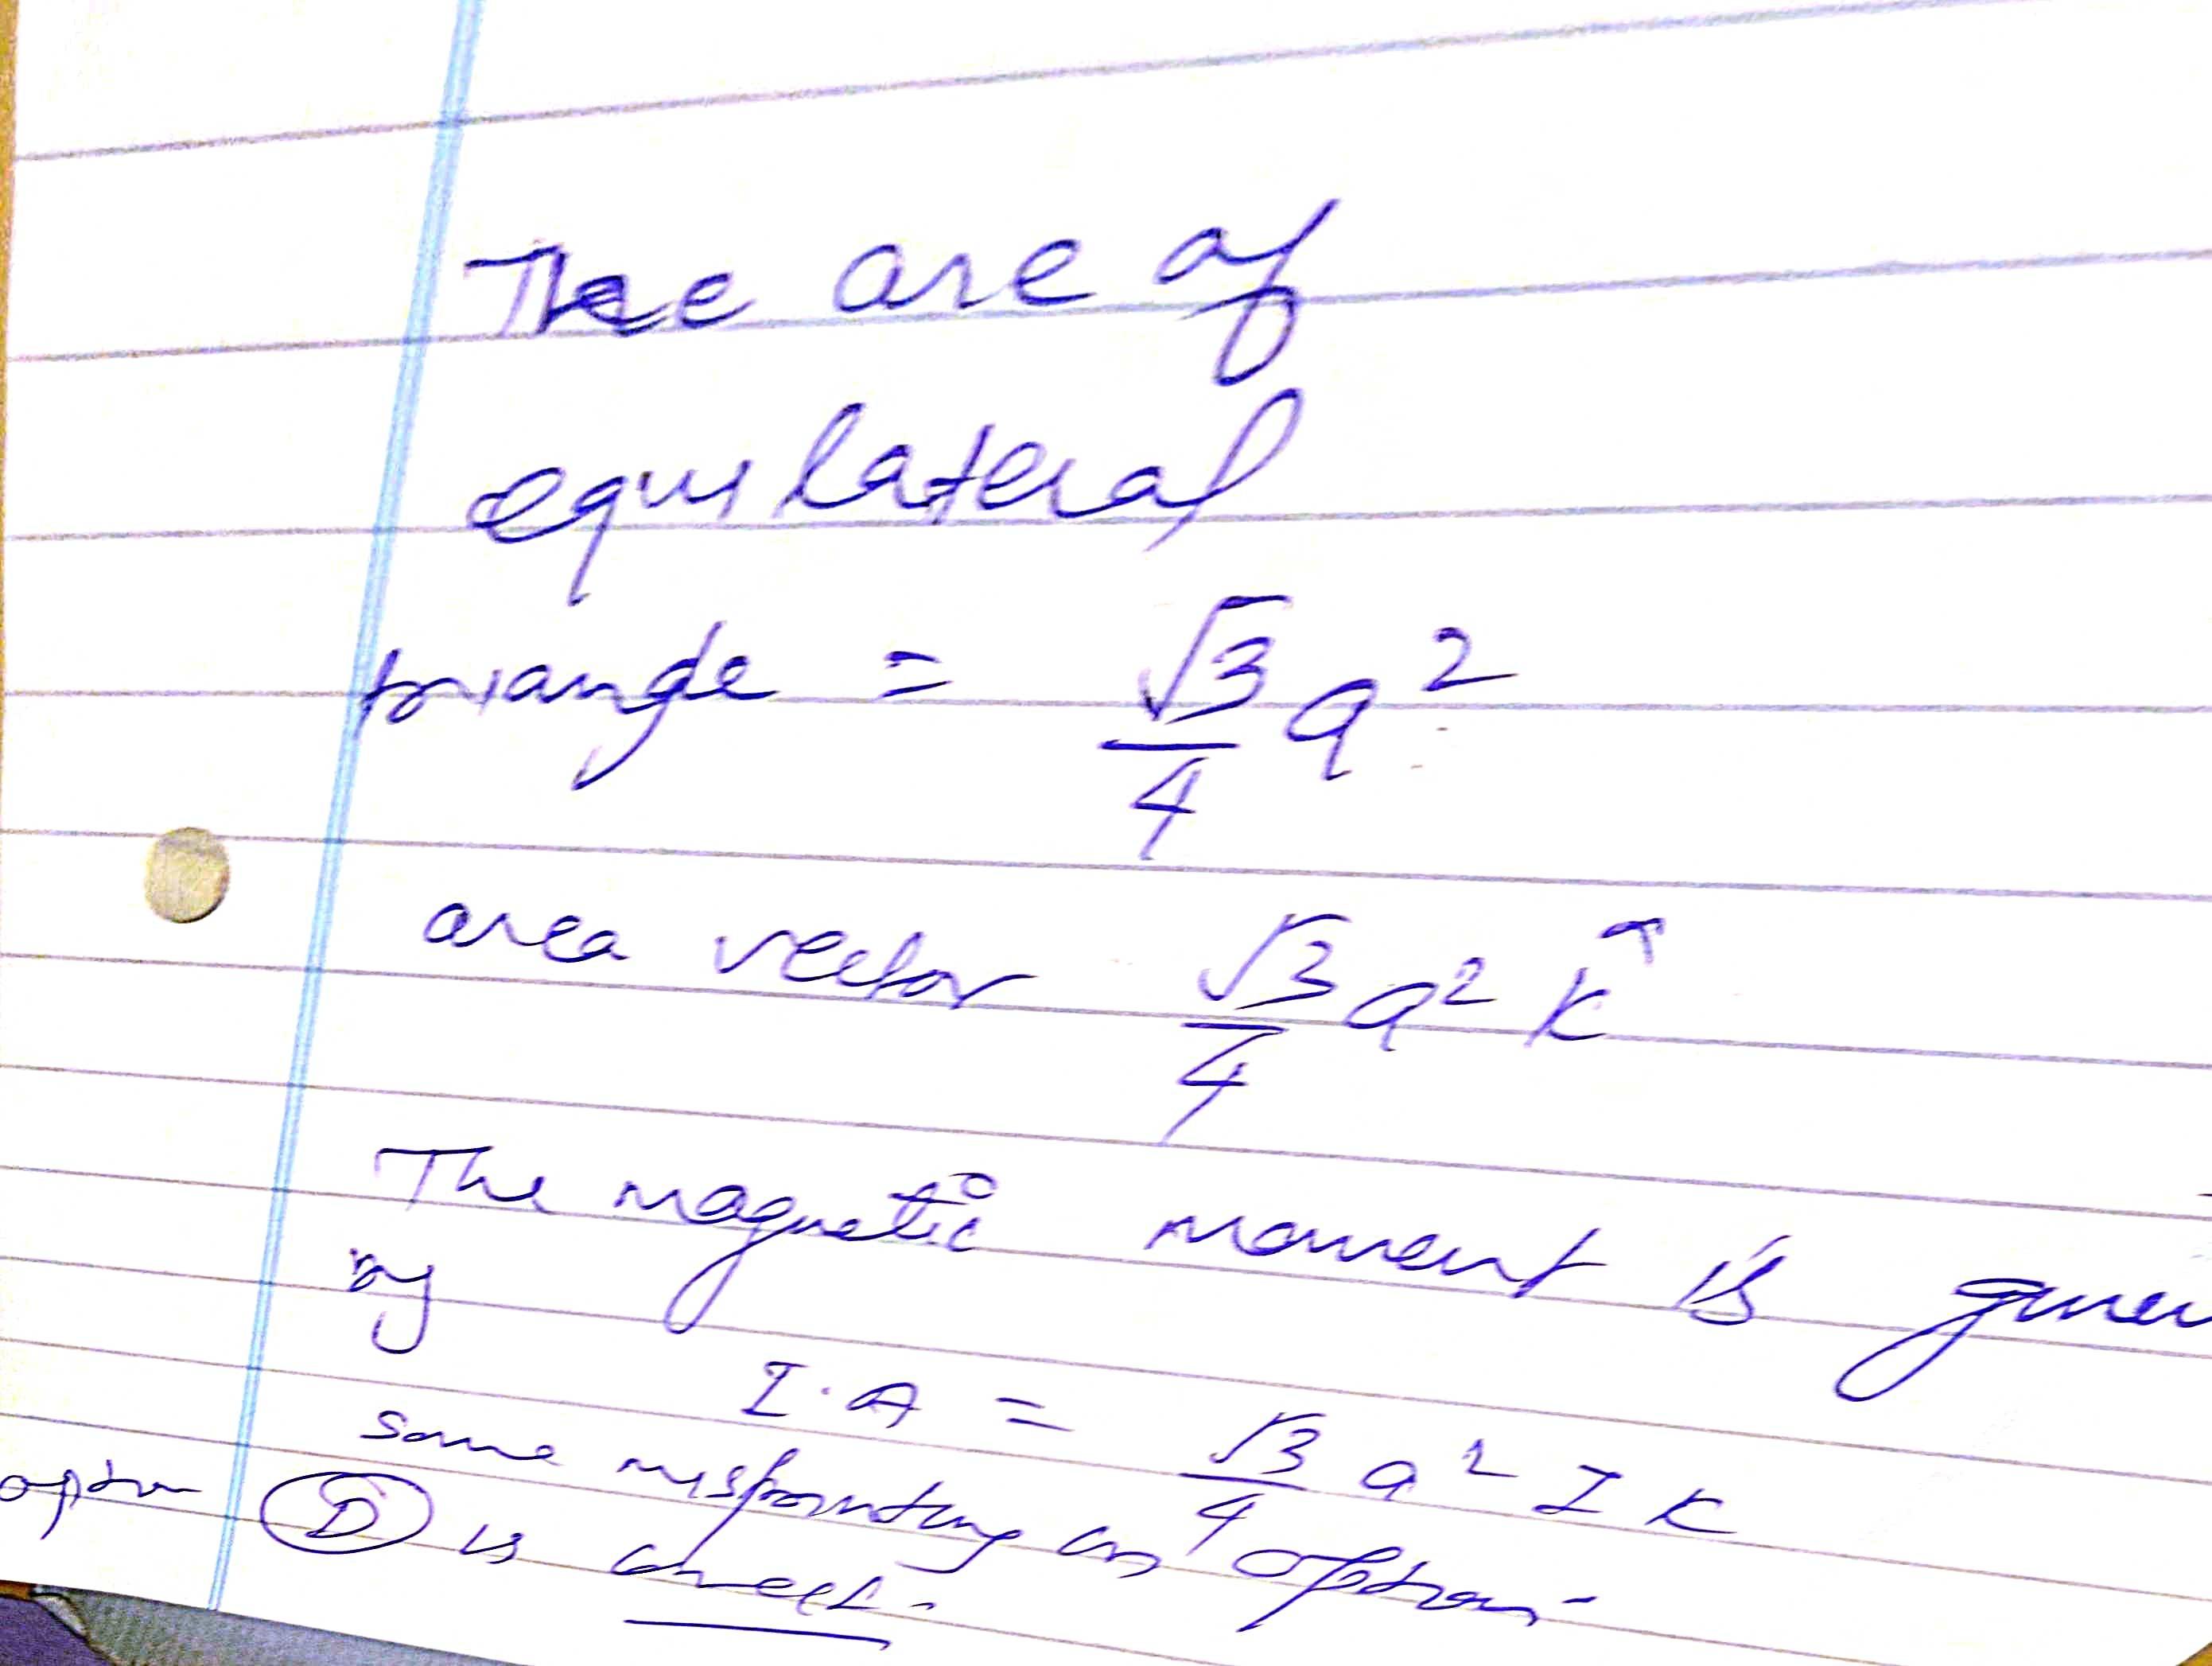 The are of
equilateral
triangle = √3/4 a²
area vector √3/4 a² k̂
The magnetic moment is given
by
I·A = √3/4 a² I k
Some misprinting in option.
option (D) is correct.